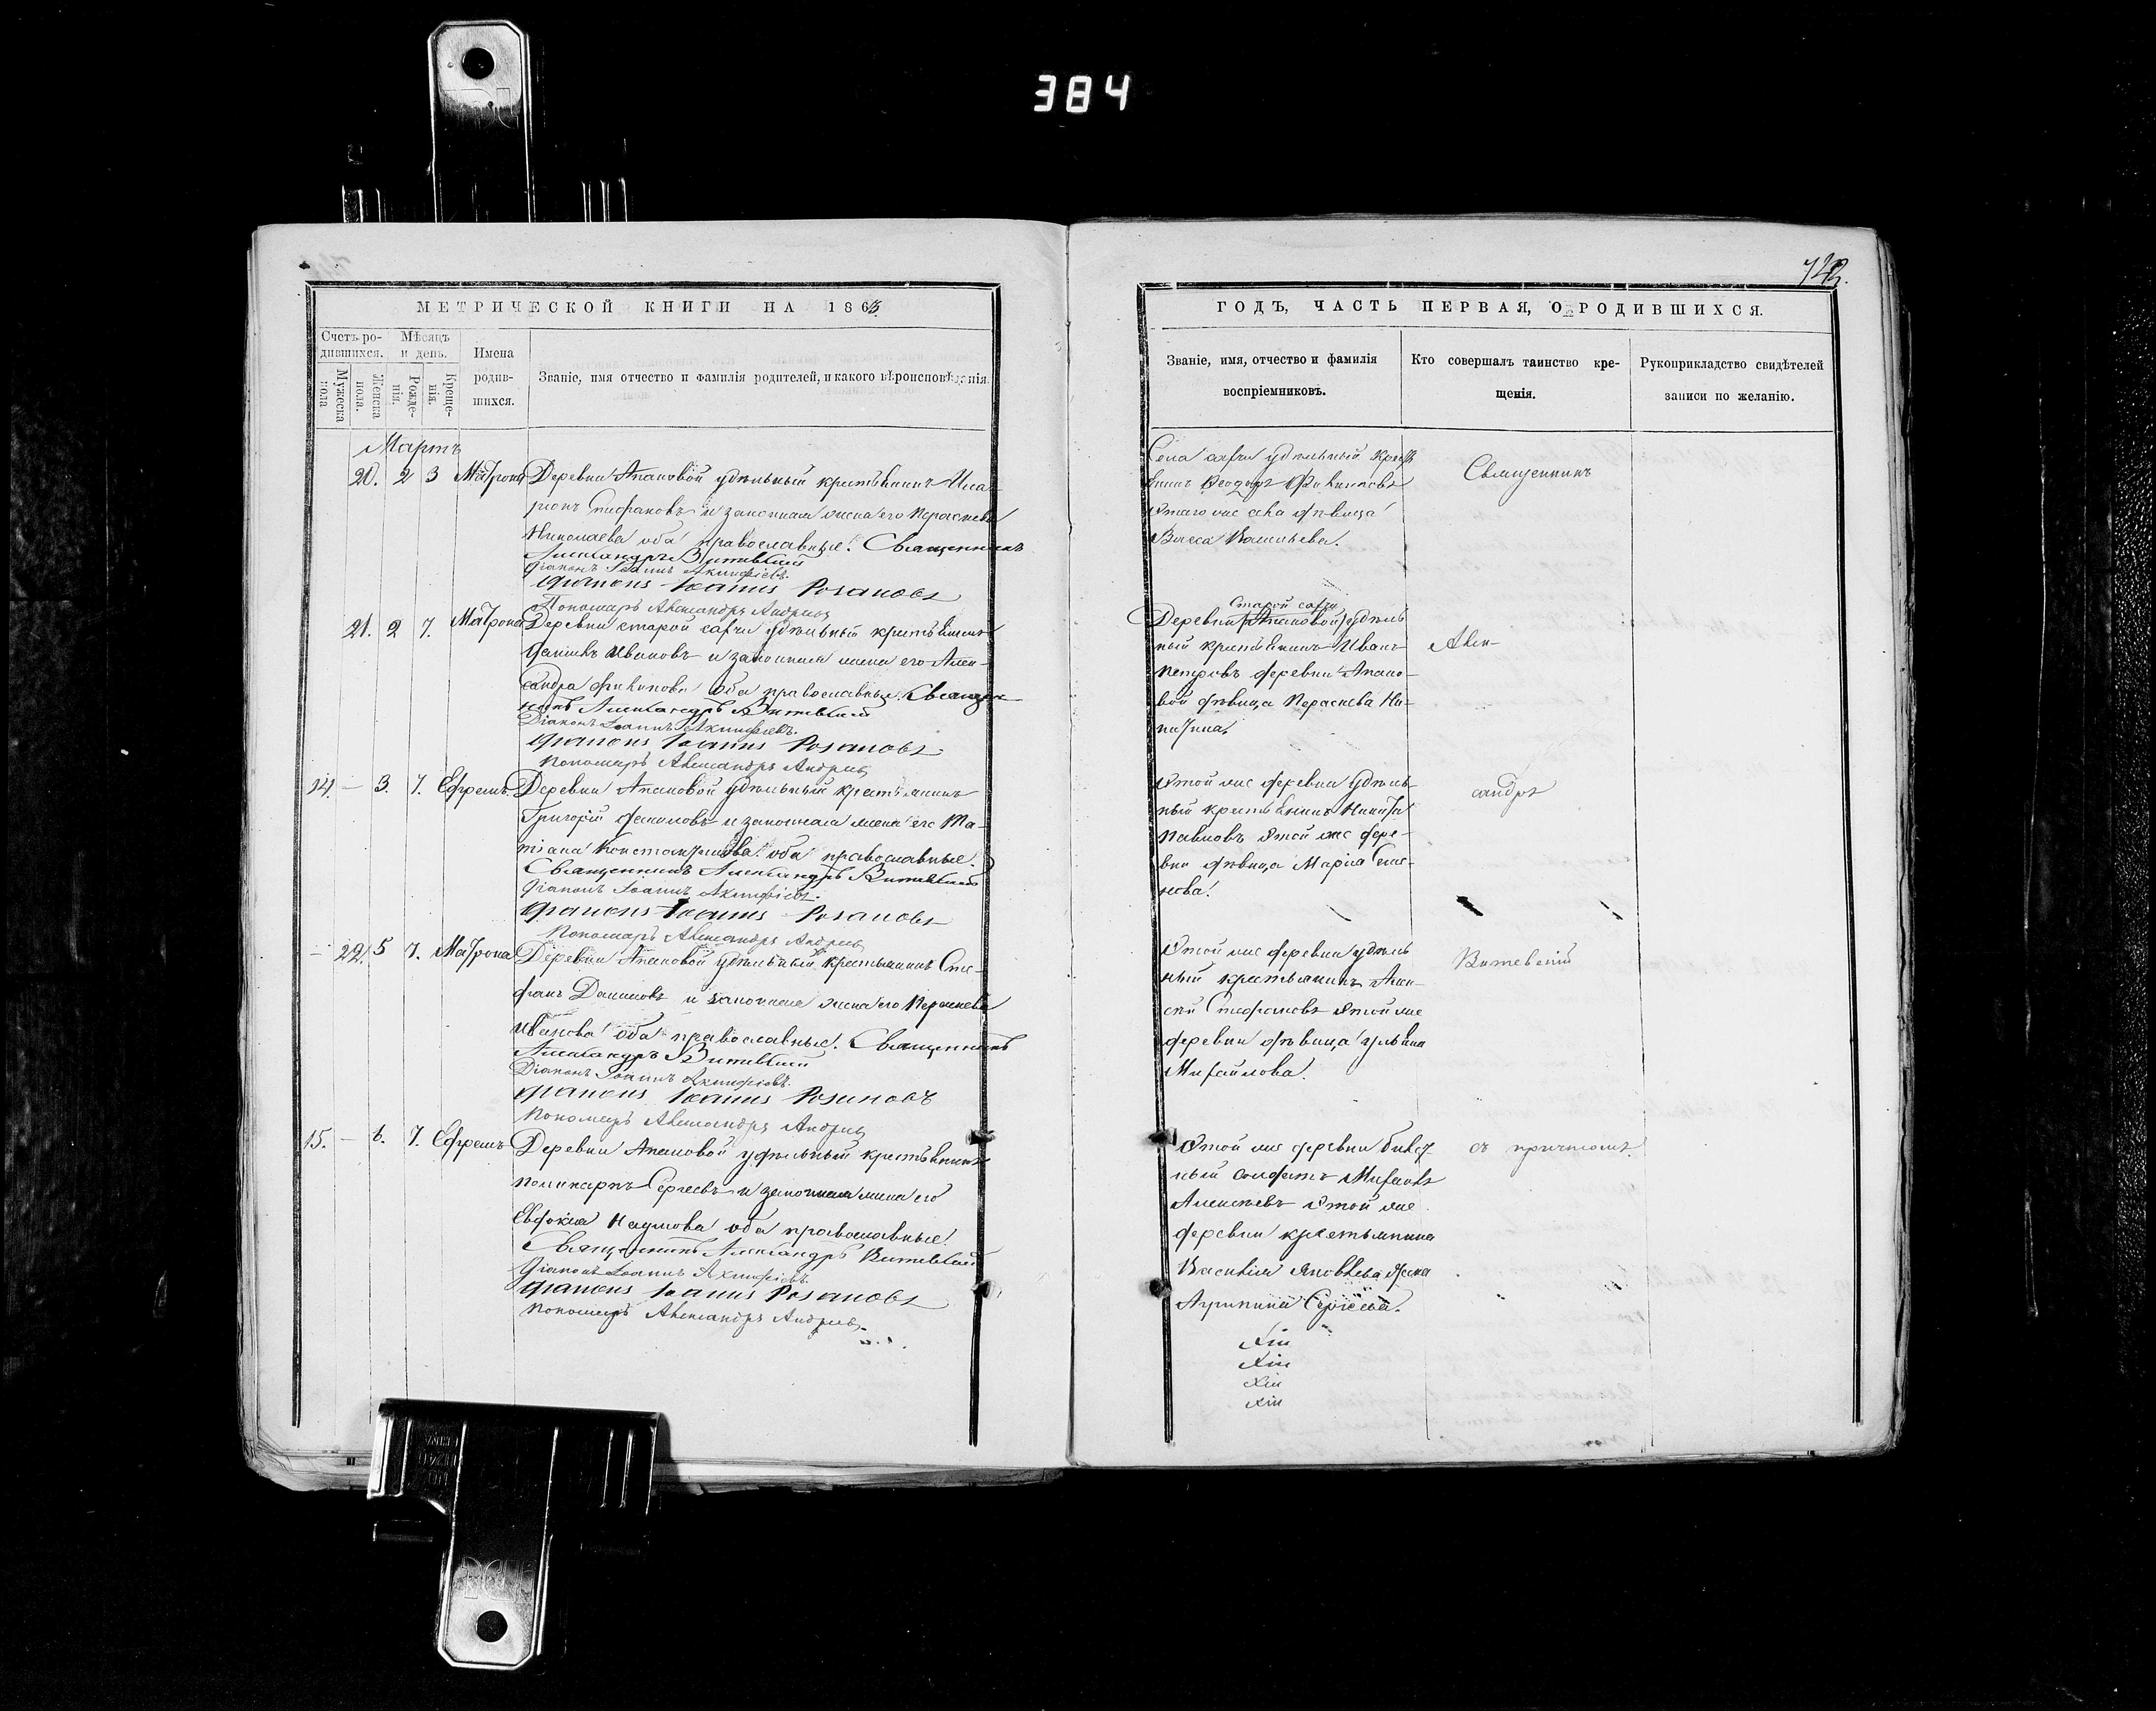 384
МЕТРИЧЕСКОЙ КНИГИ НА 1863
Счетъ ро-
дившихся.
Мѣсяцъ
и день.
Имена
родив-
шихся.
Мужеска
пола
Женска
пола.
Рожде-
нія.
Креще-
нія.
Званіе, имя отчество и фамилія родителей, и какого вѣроисповѣданія.
Мартъ
20. 2 3 Матрона Деревни Апаковой удѣльный крестьянинъ Ила-
ріонъ Стефановъ и законная жена его Параскева
Николаева оба православные. Священникъ
Александръ Витевскій
Діаконъ Іоаннъ Акинфіевъ.
Діаконъ Іоаннъ Розановъ
Пономарь Александръ
21. 2 7. Матрона Деревни старой сахчи удѣльный крестьянинъ
Ивановъ и законная жена его Алек-
сандра Филипова оба православные. Священ-
никъ Александръ Витевскій
Діаконъ Іоаннъ Акинфіевъ.
Діаконъ Іоаннъ Розановъ
Пономарь Александръ
14. — 3. 7. Ефремъ. Деревни Апаковой удѣльный крестьянинъ
Григорій и законная жена его Та-
тіана Константинова оба православные.
Священникъ Александръ Витевскій
Діаконъ Іоаннъ Акинфіевъ.
Діаконъ Іоаннъ Розановъ
Пономарь Александръ
— 22. 5 7. Матрона Деревни Апаковой удѣльный крестьянинъ Сте-
фанъ Даниловъ и законная жена его Параскева
Иванова оба православные. Священникъ
Александръ Витевскій
Діаконъ Іоаннъ Акинфіевъ.
Діаконъ Іоаннъ Розановъ
Пономарь Александръ
15. — 6. 7. Ефремъ Деревни Апаковой удѣльный крестьянинъ
Поликарпъ Сергеевъ и законная жена его
Евдокія Наумова оба православные.
Священникъ Александръ Витевскій
Діаконъ Іоаннъ Акинфіевъ.
Діаконъ Іоаннъ Розановъ
Пономарь Александръ
ГОДЪ, ЧАСТЬ ПЕРВАЯ, О РОДИВШИХСЯ.
Званіе, имя, отчество и фамилія
воспріемниковъ.
Кто совершалъ таинство кре-
щенія.
Рукоприкладство свидѣтелей
записи по желанію.
Села сахчи удѣльный кресть
янинъ Ѳеодоръ Филиповъ
этаго же села дѣвица
Васса Васильева.
Священникъ
Старой сахчи
Деревни Апаковой удѣль
ный крестьянинъ Иванъ
Петровъ деревни Апако-
вой дѣвица Параскева Ни-
китина
Алек-
Этой же деревни удѣль-
ный крестьянинъ Никита
Павловъ этой же дере-
вни дѣвица Марія Семе-
нова.
сандръ
Этой же деревни удѣль
ный крестьянинъ Алек-
сѣй Стефановъ этой же
деревни дѣвица Ульяна
Михайлова.
Витевскій
Этой же деревни
ный солдатъ
Алексѣевъ этой же
деревни крестьянина
Василія Яковлева жена
Агрипина Сергеева.
съ причтомъ.